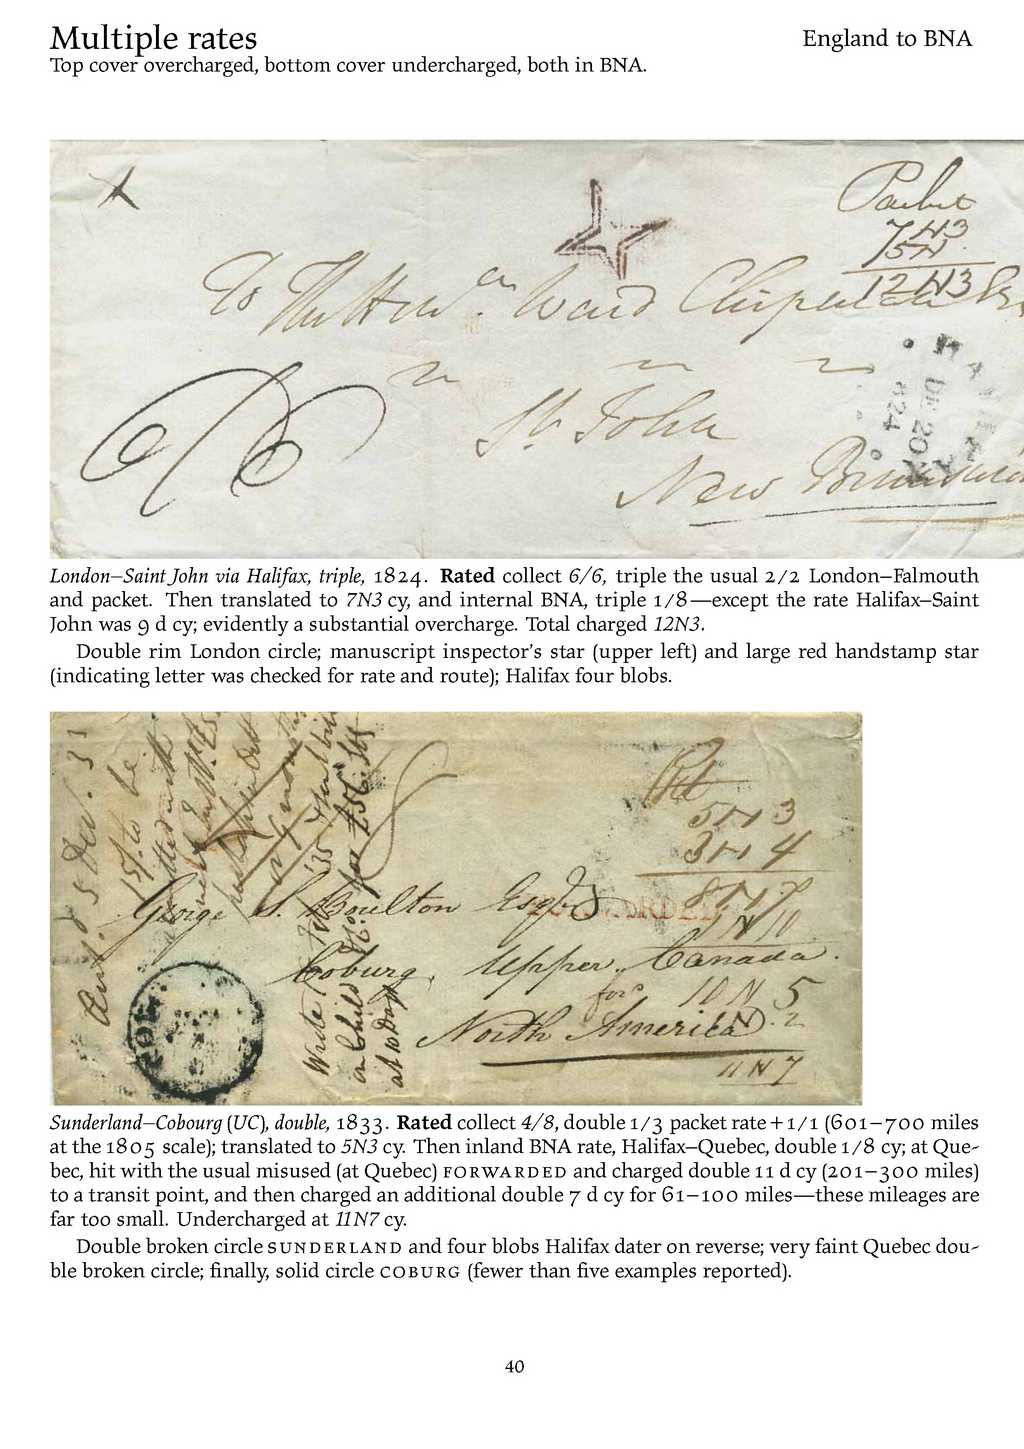 Multiple rates
England to BNA
Top cover overcharged, bottom cover undercharged, both in BNA.
Packet
7N3
5N
12N3
To The Hon. Ward Chipman Es
St. John
New Brunswick
HALIFAX
DE 20
824
6/6
London–Saint John via Halifax, triple, 1824. Rated collect 6/6, triple the usual 2/2 London–Falmouth
and packet. Then translated to 7N3 cy, and internal BNA, triple 1/8—except the rate Halifax–Saint
John was 9 d cy; evidently a substantial overcharge. Total charged 12N3.
Double rim London circle; manuscript inspector's star (upper left) and large red handstamp star
(indicating letter was checked for rate and route); Halifax four blobs.
5N3
3N4
8N7
George S. Boulton Esqr
FORWARDED
1N10
Coburg, Upper Canada.
10N5
North America
N.2
11N7
Sunderland–Cobourg (UC), double, 1833. Rated collect 4/8, double 1/3 packet rate + 1/1 (601–700 miles
at the 1805 scale); translated to 5N3 cy. Then inland BNA rate, Halifax–Quebec, double 1/8 cy; at Que-
bec, hit with the usual misused (at Quebec) FORWARDED and charged double 11 d cy (201–300 miles)
to a transit point, and then charged an additional double 7 d cy for 61–100 miles—these mileages are
far too small. Undercharged at 11N7 cy.
Double broken circle SUNDERLAND and four blobs Halifax dater on reverse; very faint Quebec dou-
ble broken circle; finally, solid circle COBURG (fewer than five examples reported).
40